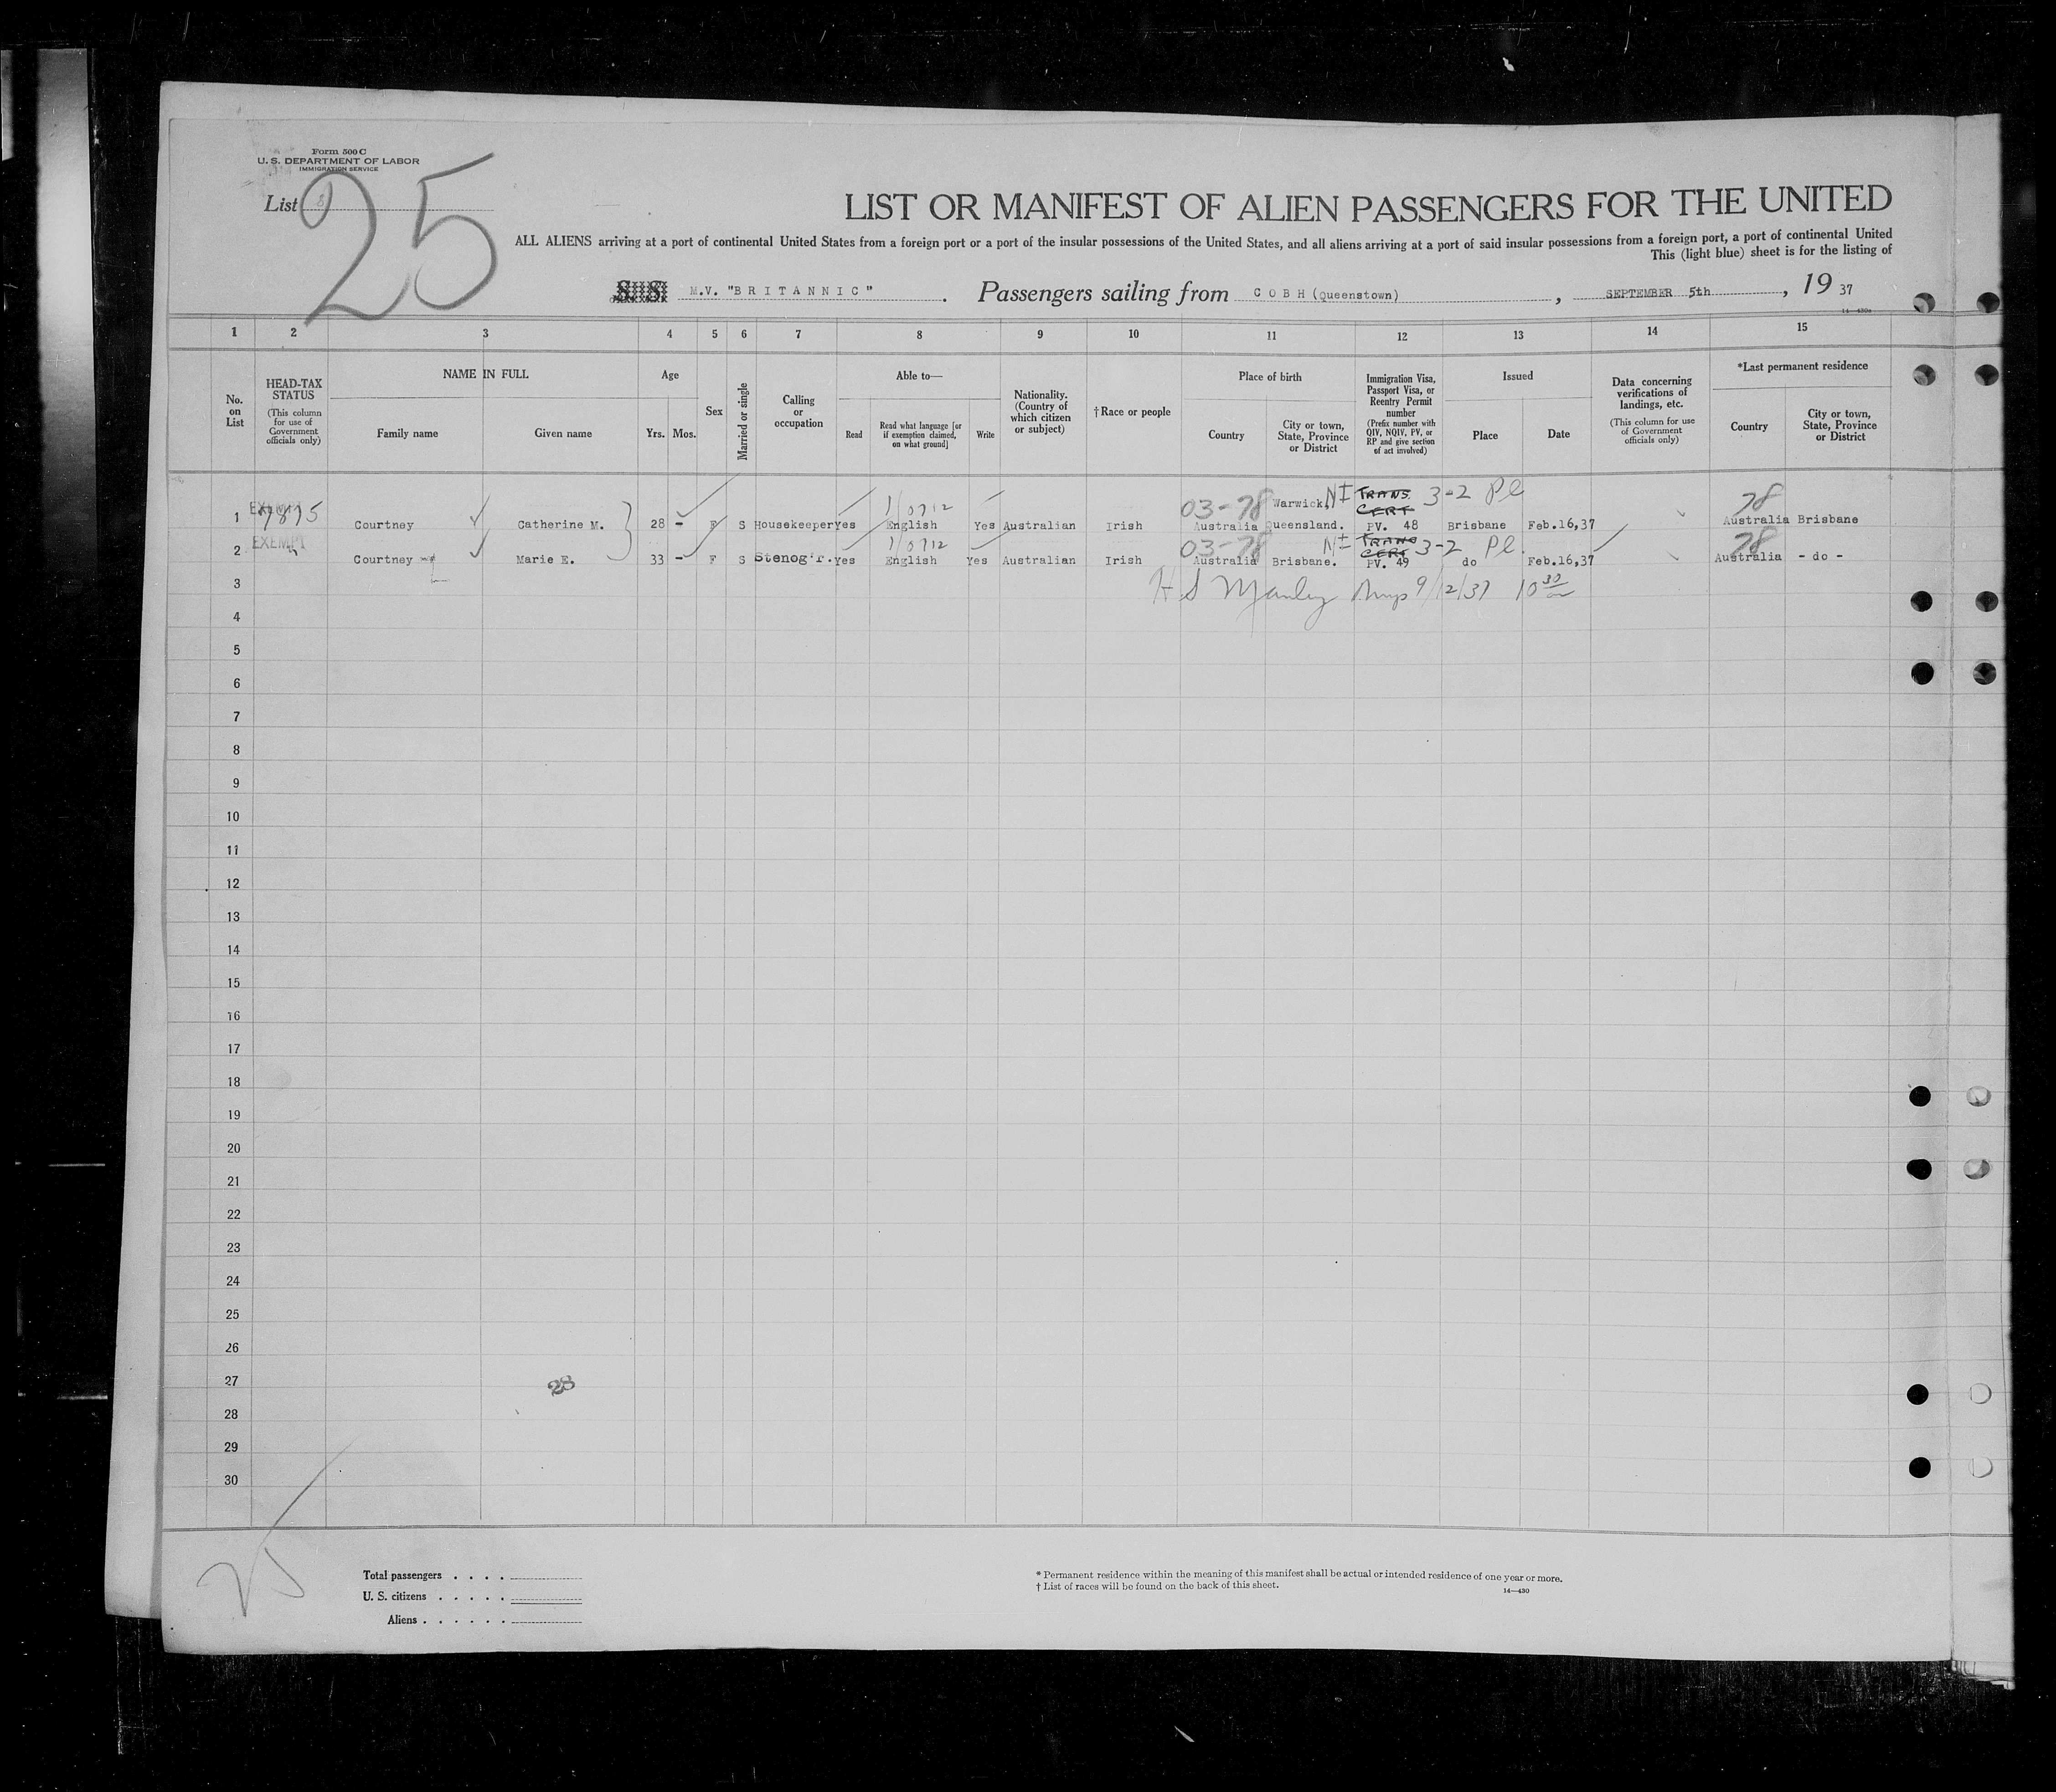 Form 500 C
U. S. DEPARTMENT OF LABOR
IMMIGRATION SERVICE
List 8
25
LIST OR MANIFEST OF ALIEN PASSENGERS FOR THE UNITED
ALL ALIENS arriving at a port of continental United States from a foreign port or a port of the insular possessions of the United States, and all aliens arriving at a port of said insular possessions from a foreign port, a port of continental United
This (light blue) sheet is for the listing of
S. S. M.V. "BRITANNIC". Passengers sailing from COBH (Queenstown), SEPTEMBER 5th, 19 37
14—430a
1 2 3 4 5 6 7 8 9 10 11 12 13 14 15
No. on List
HEAD-TAX STATUS
(This column for use of Government officials only)
NAME IN FULL
Family name Given name
Age
Yrs. Mos.
Sex
Married or single
Calling or occupation
Able to—
Read
Read what language [or if exemption claimed, on what ground]
Write
Nationality. (Country of which citizen or subject)
†Race or people
Place of birth
Country
City or town, State, Province or District
Immigration Visa, Passport Visa, or Reentry Permit number
(Prefix number with QIV, NQIV, PV, or RP and give section of act involved)
Issued
Place Date
Data concerning verifications of landings, etc.
(This column for use of Government officials only)
*Last permanent residence
Country
City or town, State, Province or District
EXEMPT 1/0712 03-78 Warwick, NI TRANS. CERT 3-2 Pl 78
1 Courtney Catherine M. 28 - F S Housekeeper Yes English Yes Australian Irish Australia Queensland. PV. 48 Brisbane Feb.16,37 Australia Brisbane
EXEMPT 1/0712 03-78 NI TRANS CERT 3-2 Pl. 78
2 Courtney Marie E. 33 - F S Stenog'r. Yes English Yes Australian Irish Australia Brisbane. PV. 49 do Feb.16,37 Australia - do -
3 H S Manley 9/12/37 10 30
4
5
6
7
8
9
10
11
12
13
14
15
16
17
18
19
20
21
22
23
24
25
26
27 28
28
29
30
25
Total passengers . . . .
U. S. citizens . . . . .
Aliens . . . . . .
* Permanent residence within the meaning of this manifest shall be actual or intended residence of one year or more.
† List of races will be found on the back of this sheet.
14—430